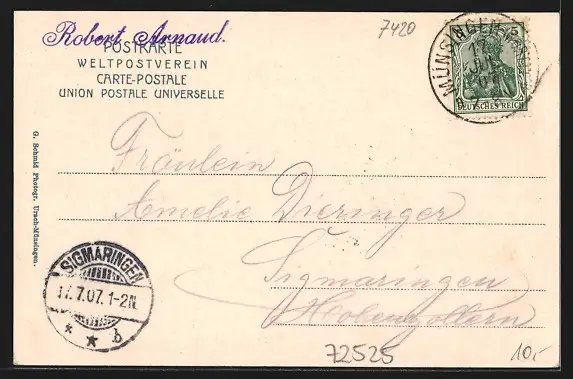 Robert Arnaud.
7420
POSTKARTE
WELTPOSTVEREIN
CARTE-POSTALE
UNION POSTALE UNIVERSELLE
MÜNSINGEN
17
JUL
07
5
DEUTSCHES REICH
Fräulein
Amelie Dieringer
Sigmaringen
Hohenzollern
G. Schmid Photogr. Urach-Münsingen.
SIGMARINGEN
17.7.07.1-2N.
* * b
72525
10,-